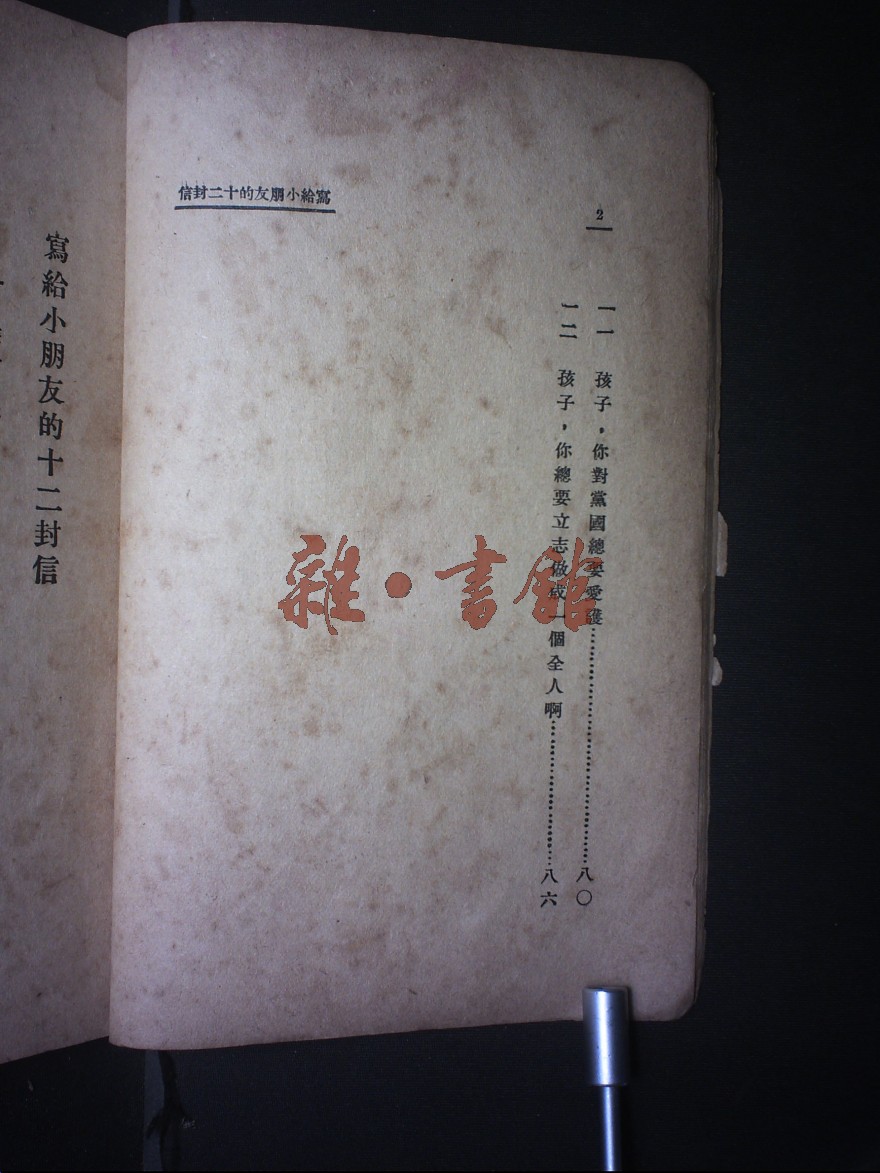 信封二十的友朋小給寫
2
一一 孩子,你對黨國總要愛護……八〇
一二 孩子,你總要立志做成一個全人啊……八六
寫給小朋友的十二封信
雜·書館